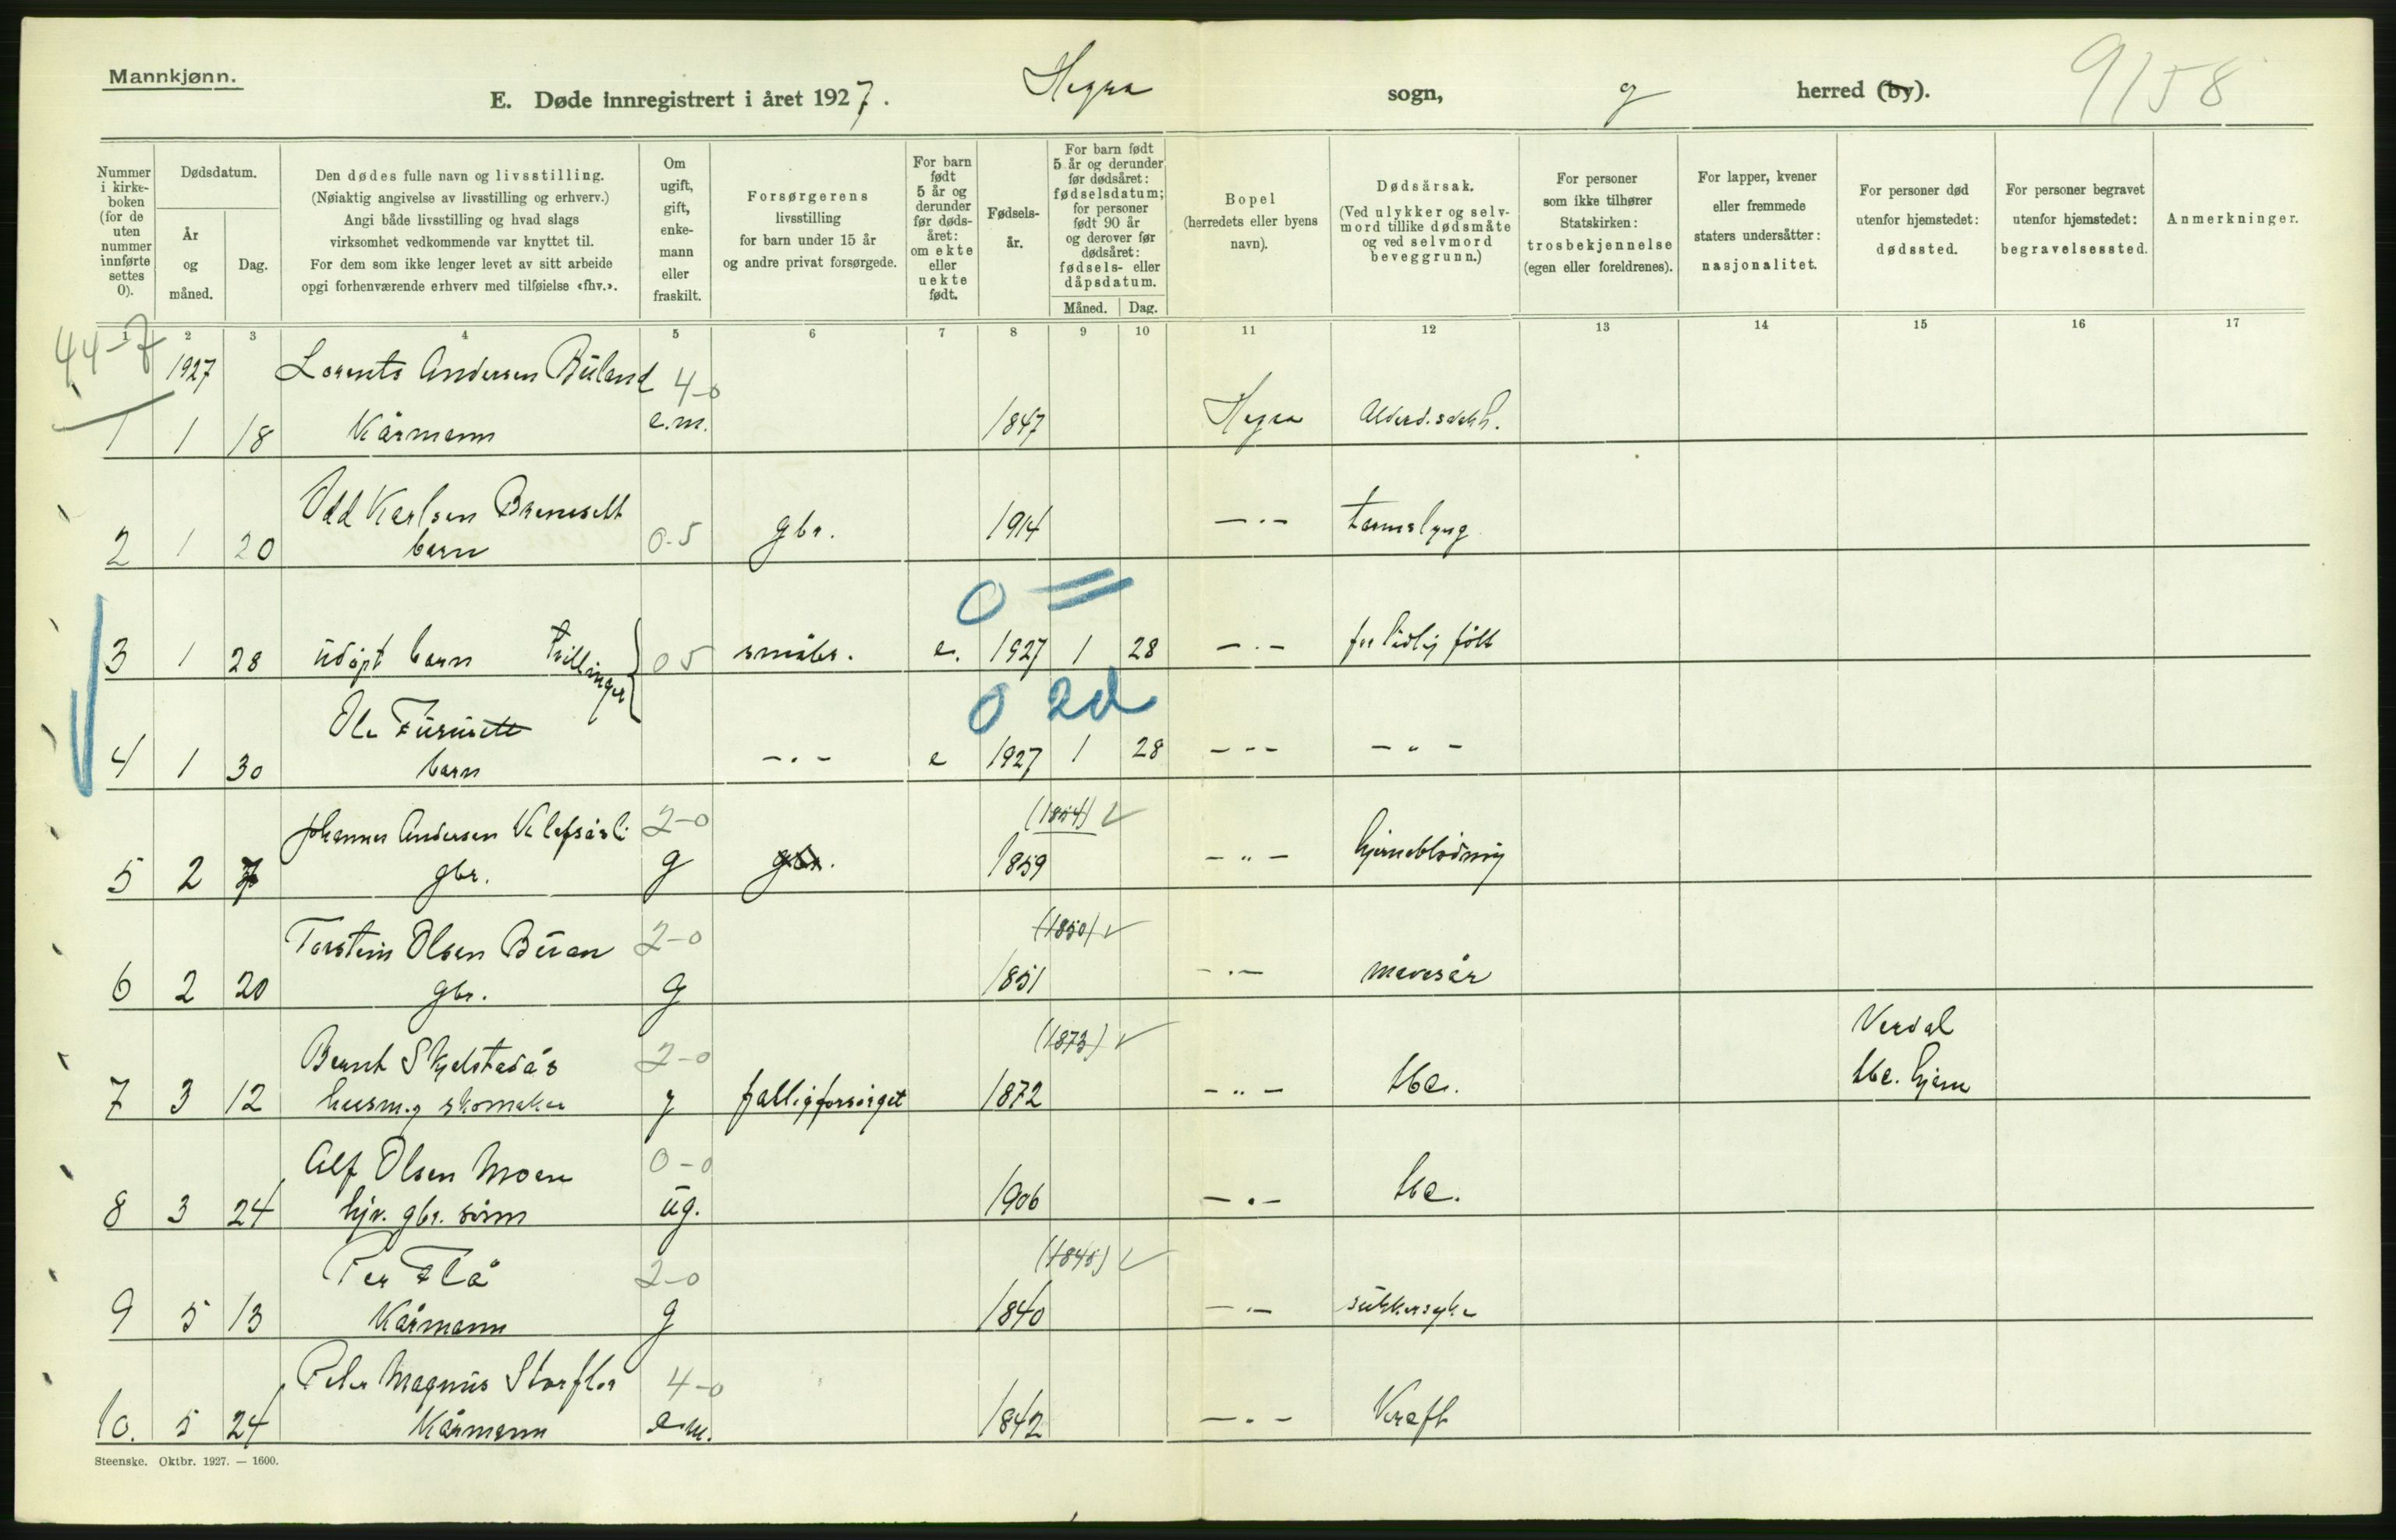 Mannkjønn.
E. Døde innregistrert i året 1927. Hegra sogn, g herred (by). 9/58
Nummer i kirkeboken (for de uten nummer innførte settes 0).
Dødsdatum.
År og måned.
Dag.
Den dødes fulle navn og livsstilling.
(Nøiaktig angivelse av livsstilling og erhverv.)
Angi både livsstilling og hvad slags
virksomhet vedkommende var knyttet til.
For dem som ikke lenger levet av sitt arbeide
opgi forhenværende erhverv med tilføielse «fhv.».
Om ugift, gift, enkemann eller fraskilt.
Forsørgerens
livsstilling
for barn under 15 år
og andre privat forsørgede.
For barn født 5 år og derunder før dødsåret: om ekte eller uekte født.
Fødselsår.
For barn født 5 år og derunder før dødsåret: fødselsdatum; for personer født 90 år og derover før dødsåret: fødsels- eller dåpsdatum.
Måned. Dag.
Bopel
(herredets eller byens
navn).
Dødsårsak.
(Ved ulykker og selvmord tillike dødsmåte og ved selvmord beveggrunn.)
For personer
som ikke tilhører
Statskirken:
trosbekjennelse
(egen eller foreldrenes).
For lapper, kvener
eller fremmede
staters undersåtter:
nasjonalitet.
For personer død
utenfor hjemstedet:
dødssted.
For personer begravet
utenfor hjemstedet:
begravelsessted.
Anmerkninger.
1 2 3 4 5 6 7 8 9 10 11 12 13 14 15 16 17
44-7
1927 Lorents Andersen Buland 4-0
1 1 18 Kårmann e.m. 1847 Hegra Alderd.svakh.
Odd Karlsen Bremsett
2 1 20 barn 0-5 gbr. 1914 -"- tarmslyng
0 =
3 1 28 udøpt barn tvillinger 05 småbr. e. 1927 1 28 -"- for tidlig født
0 2d
Ole Furusett
4 1 30 barn -"- e 1927 1 28 -"- -"-
Johannes Andersen Klefsåsli 2-0 (1854) ✓
5 2 7 gbr. g gbr. 1859 -"- hjerneblødning
Torstein Olsen Buran 2-0 (1850) ✓
6 2 20 gbr. g 1851 -"- mavesår
Bernt Skjelstadås 2-0 (1873) ✓ Verdal
7 3 12 husm. og skomaker g fattigforsørget 1872 -"- tbc. tbc. hjem
Alf Olsen Moen 0-0
8 3 24 hjv. gbr. sønn ug. 1906 -"- tbc.
Per Flå 2-0 (1845) ✓
9 5 13 Kårmann g 1840 -"- sukkersyke
Peter Magnus Storflor 4-0
10. 5 24 Kårmann e.m. 1842 -"- Kreft
Steenske. Oktbr. 1927. — 1600.